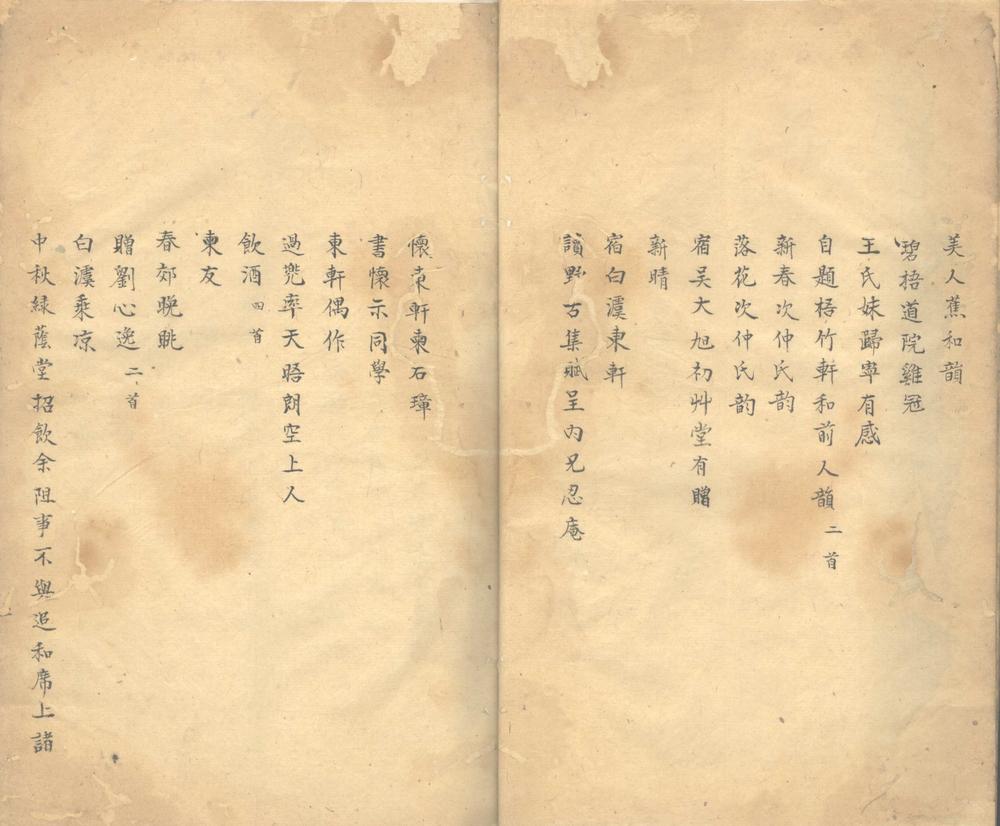 美人蕉和韻
碧梧道院雞冠
王氏妹歸寧有感
自題梧竹軒和前人韻二首
新春次仲氏韵
落花次仲氏韵
宿吴大旭初艸堂有贈
新晴
宿白漊東軒
讀野古集賦呈内兄忍庵
懷東軒柬石璋
書懷示同學
東軒偶作
過兠率天晤朗空上人
飲酒四首
柬友
春郊晚眺
贈劉心逸二首
白漊乘凉
中秋緑蔭堂招飲余阻事不與追和席上諸